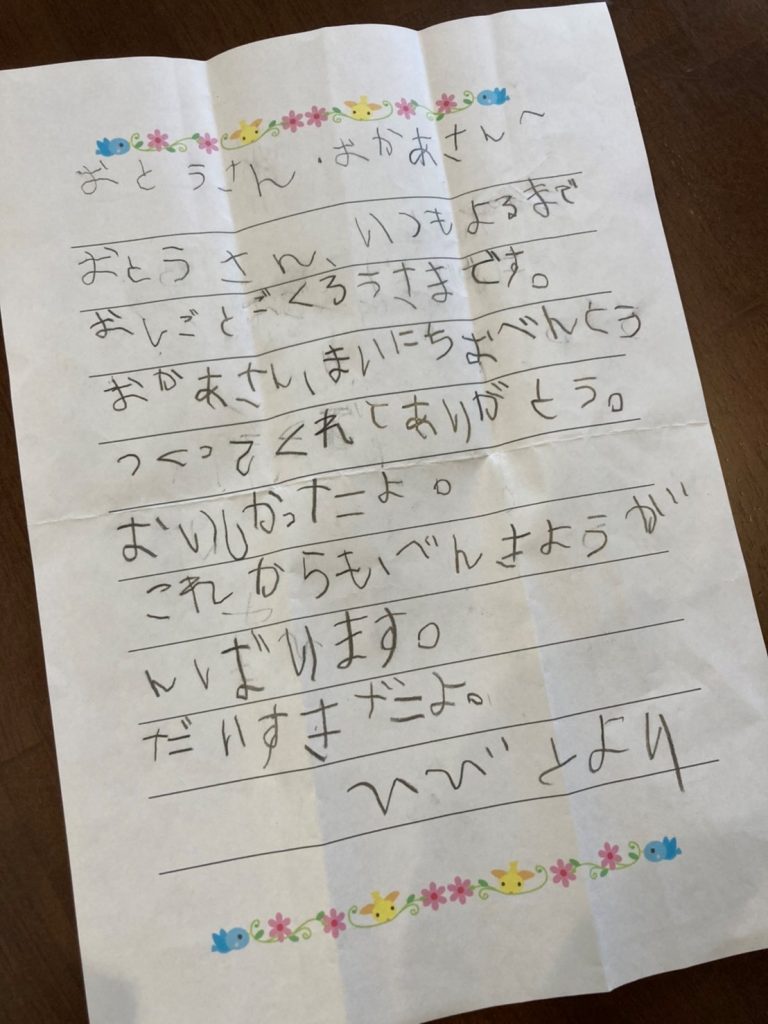 おとうさん・おかあさんへ
おとうさん、いつもよるまで
おしごとごくろうさまです。
おかあさん、まいにちおべんとう
つくってくれとありがとう。
おいしかったよ。
これからもべんきようが
んばります。
だいすきだよ。
ひびとより